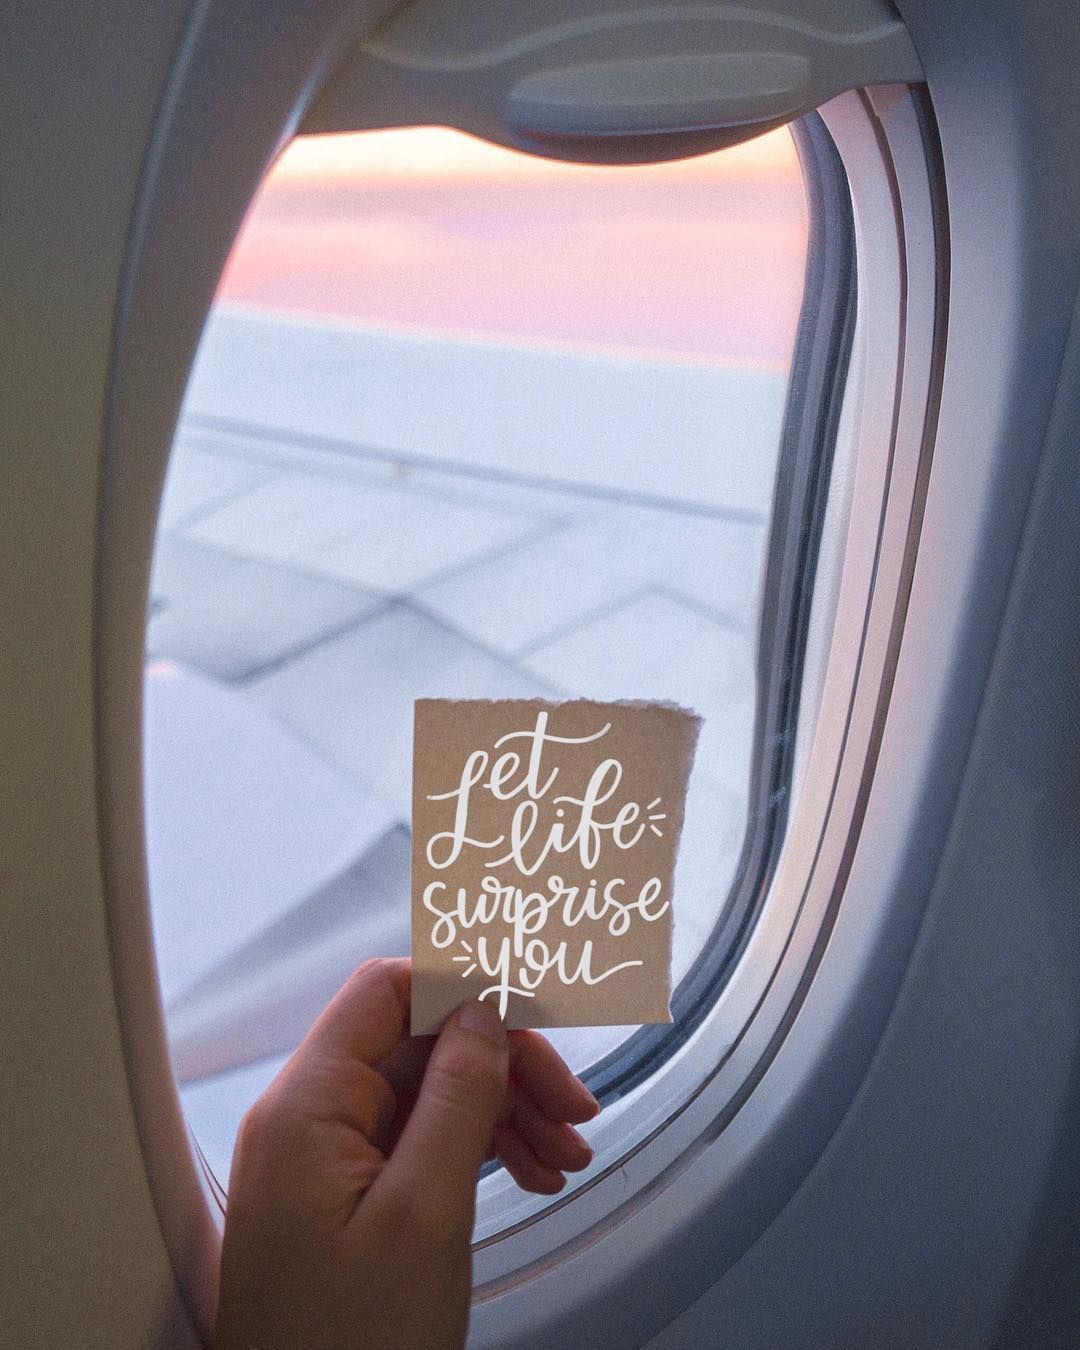 Let
life
surprise
you